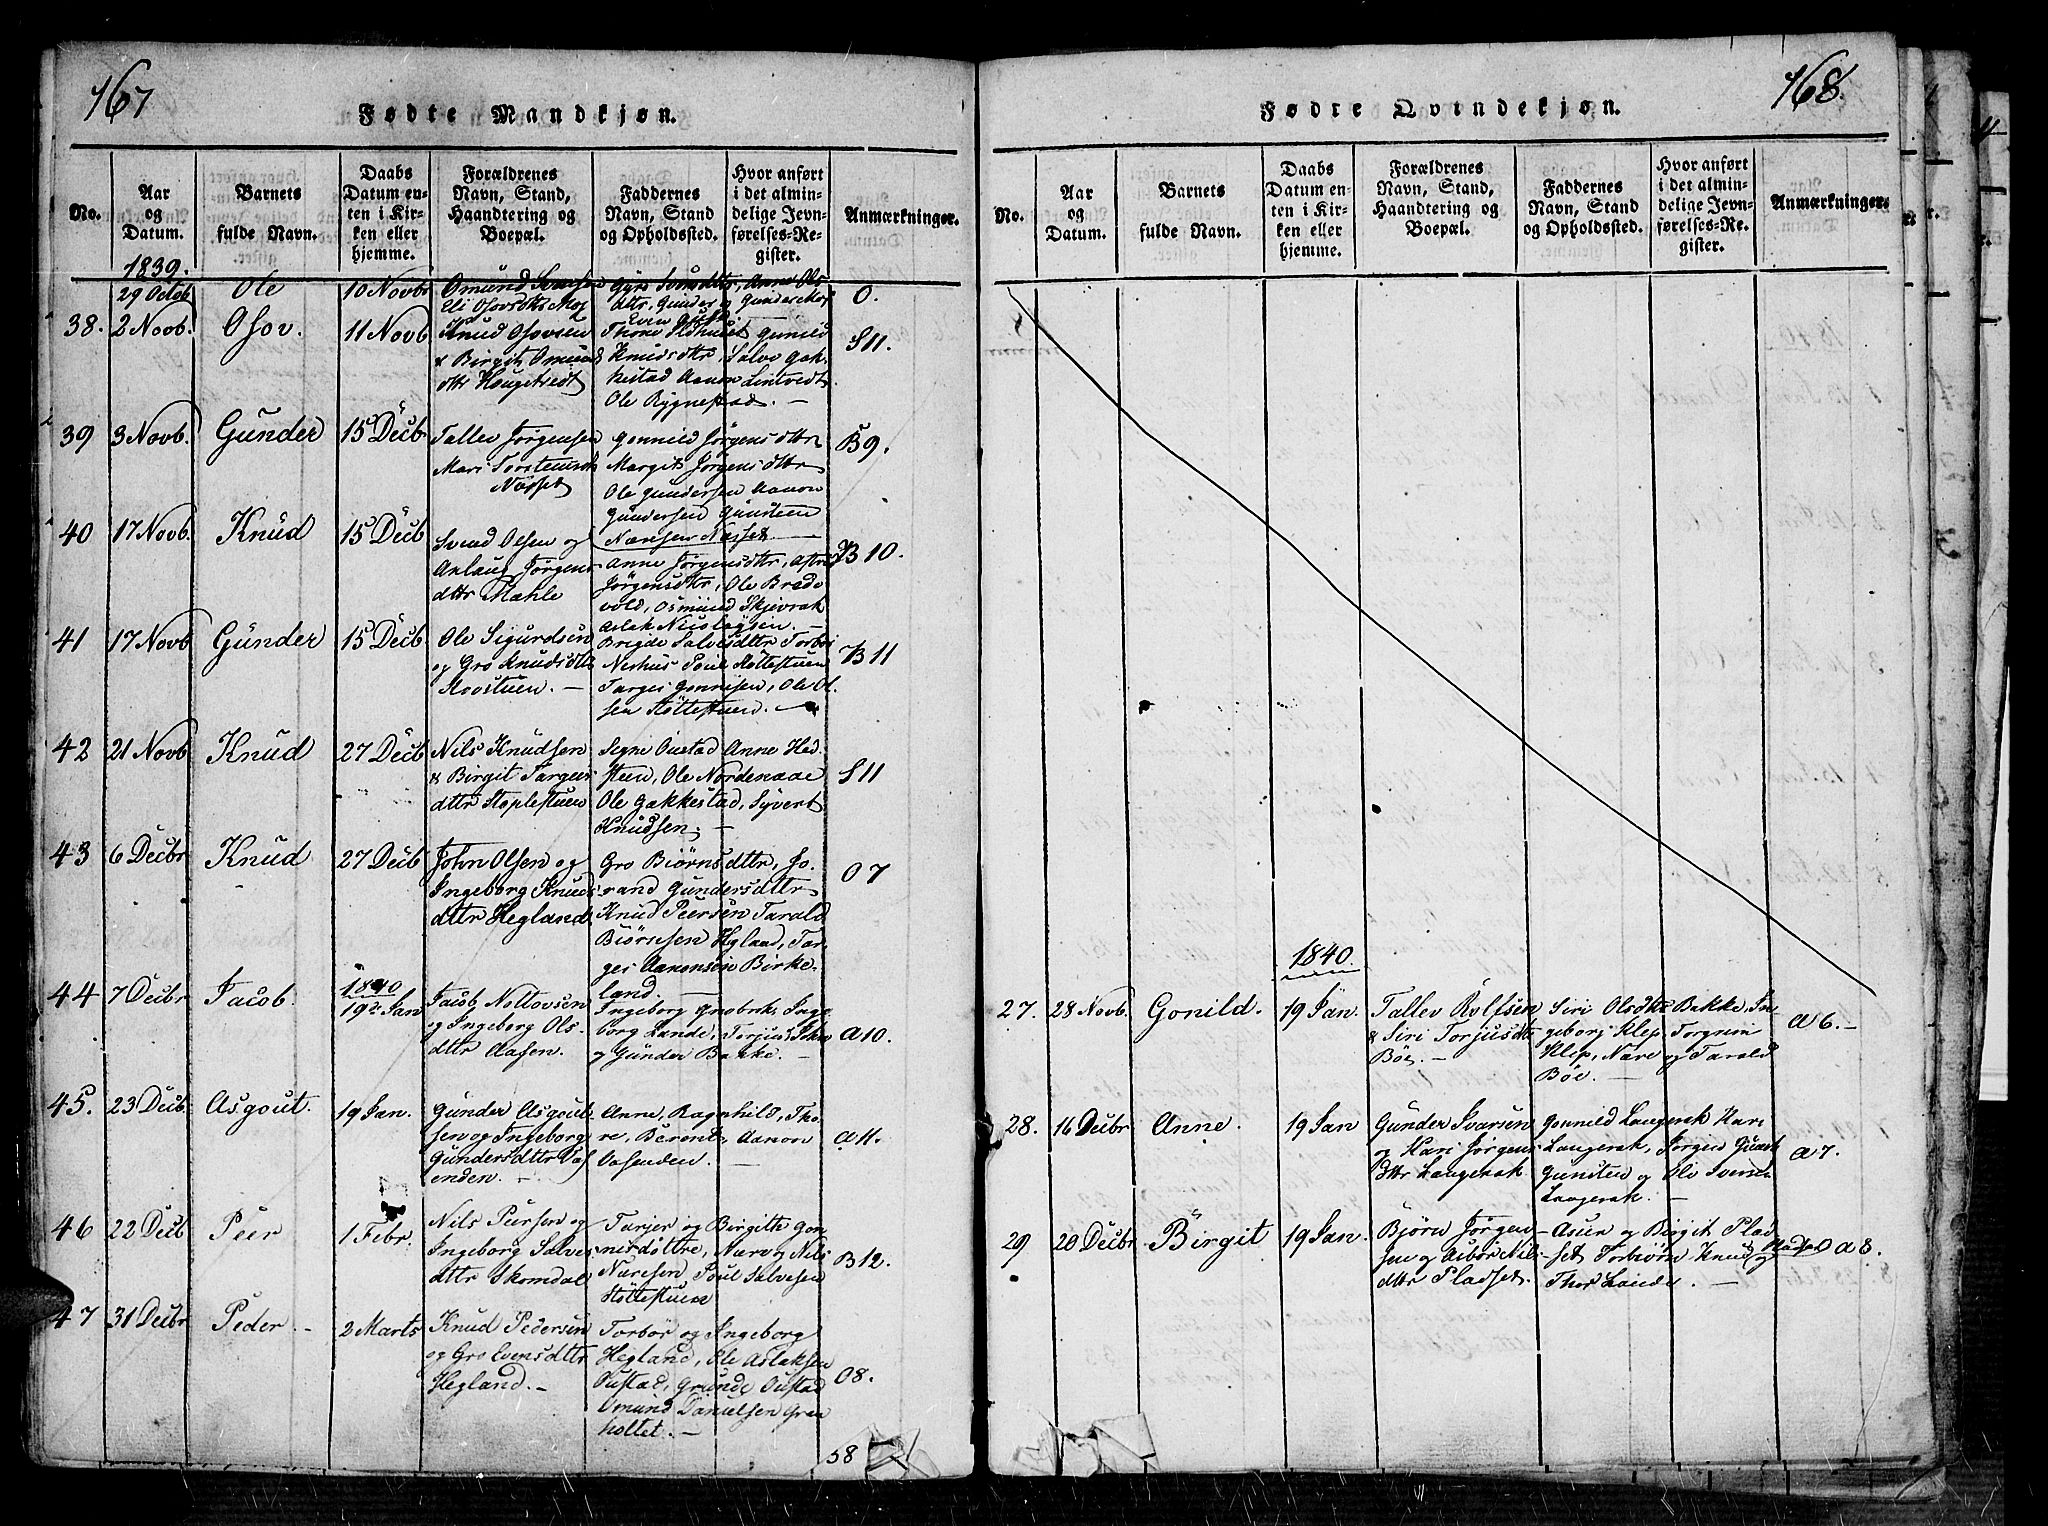 167
Fødte Mandkjøn.
No.
Aar
og
Datum.
Barnets
fulde Navn.
Daabs
Datum en-
ten i Kir-
ken eller
hjemme.
Forældrenes
Navn, Stand,
Haandtering og
Boepæl.
Faddernes
Navn, Stand
og Opholdssted.
Hvor anført
i det almin-
delige Jevn-
førelses-Re-
gister.
Anmærkninger.
1839.
29 Octob
Ole
10 Novbr
Omund
O.
38.
2 Novb.
Osov.
11 Novb
Knud Osovsen
& Birgit Omunds
dttr Haugstedt
Gunild
Knudsdttr, Salve Gak-
kestad Aanon Lintvedt
Ole Rygnestad. –
S11.
39
3 Novb.
Gunder
15 Decb
Tallev Jørgensen
Mari
Næsset
Gonnild Jørgensdttr
Margit Jørgensdttr
Ole Gundersen Aanon
Gundersen Gunsteen
Næsset
B9.
40
17 Novb.
Knud
15 Decb
Svend Olsen og
Aslaug Jørgens
dttr Mæhle
Anne Jørgensdttr,
Jørgensdttr, Ole Brede
vold, Osmund
Aslak Nicolaysen. –
B10.
41
17 Novb
Gunder
15 Decb
Ole Sigurdsen
og Gro Knudsdttr
–
Brigde Salvesdttr Torbør
Nerhus Poul Støttestuen
Targer Gonnisen, Ole Ol-
sen Støttestuen. –
B11
42
21 Novb
Knud
27 Decb
Nils Knudsen
& Birgit Targeis
dttr Stoplestuen
Signe Oustad Anne Hed-
steen, Ole Nordenaae
Ole Gakkestad, Syvert
Knudsen. –
S11
43
6 Decbr
Knud
27 Decb
John Olsen og
Ingeborg Knuds
dttr Hegland
Gro Biørnsdttr, Jo-
rand Gundersdttr
Knud Peersen Tarald
Biørnsen Hegland, Tar-
ger Aanonsen Birke-
land. –
O7
44
7 Decbr
Jacob.
1840
19de Jan
Jacob Noltovsen
og Ingeborg Ols-
dttr Aasen.
Ingeborg
borg Lande, Torjus
og Gunder Bakke. –
A10.
45.
23 Decb.
Asgout.
19 Jan.
Gunder Asgout-
sen og Ingeborg
Gundersdttr Vas-
enden. –
Anne, Ragnhild, Tho-
re, Berent, Aanon
Vasenden. –
A11.
46
22 Decb
Peer
1 Febr.
Nils Peersen og
Ingeborg Salves
dttr Skomdal
Turjer og Birgitte Gon-
nisdøttre, Narve Nils
Navesen, Poul Salvesen
Støttestuen
B12.
47
31 Decbr
Peder. –
2 Marts
Knud Pedersen
og Gro Evensdttr
Hegland. –
Torbør og Ingeborg
Hegland, Ole Aslaksen
Oustad, Grunde Oustad
Omund Danielsen Gran
holtet. –
O8.
58
168.
Fødre Qvindekjøn.
No.
Aar
og
Datum.
Barnets
fulde Navn.
Daabs
Datum en-
ten i Kir-
ken eller
hjemme.
Forældrenes
Navn, Stand,
Haandtering og
Boepæl.
Faddernes
Navn, Stand
og Opholdssted.
Hvor anført
i det almin-
delige Jevn-
førelses-Re-
gister.
Anmærkninger.
1840.
27.
28 Novb.
Gonild.
19 Jan.
Tallev Rolfsen
& Siri Torjusdttr
Bøe. –
Siri Olsdttr Bakke In-
geborg Klep, Torgrim
Klep, Nave og Tarald
Bøe. –
A6. –
28.
16 Decbr
Anne.
19 Jan
Gunder Ivarsen
og Kari Jørgens
dttr Langerak
Gonnild Langerak Kari
Langerak, Jørgen
Gunsten og
Langerak. –
A7.
29
20 Decbr
Birgit
19 Jan.
Bjørn Jørgen-
sen og Asbør Nils-
dttr Pladset.
Asur og Birgit Plad-
set Torbiørn Knud og Pladset
Thor Lande. –
A8.